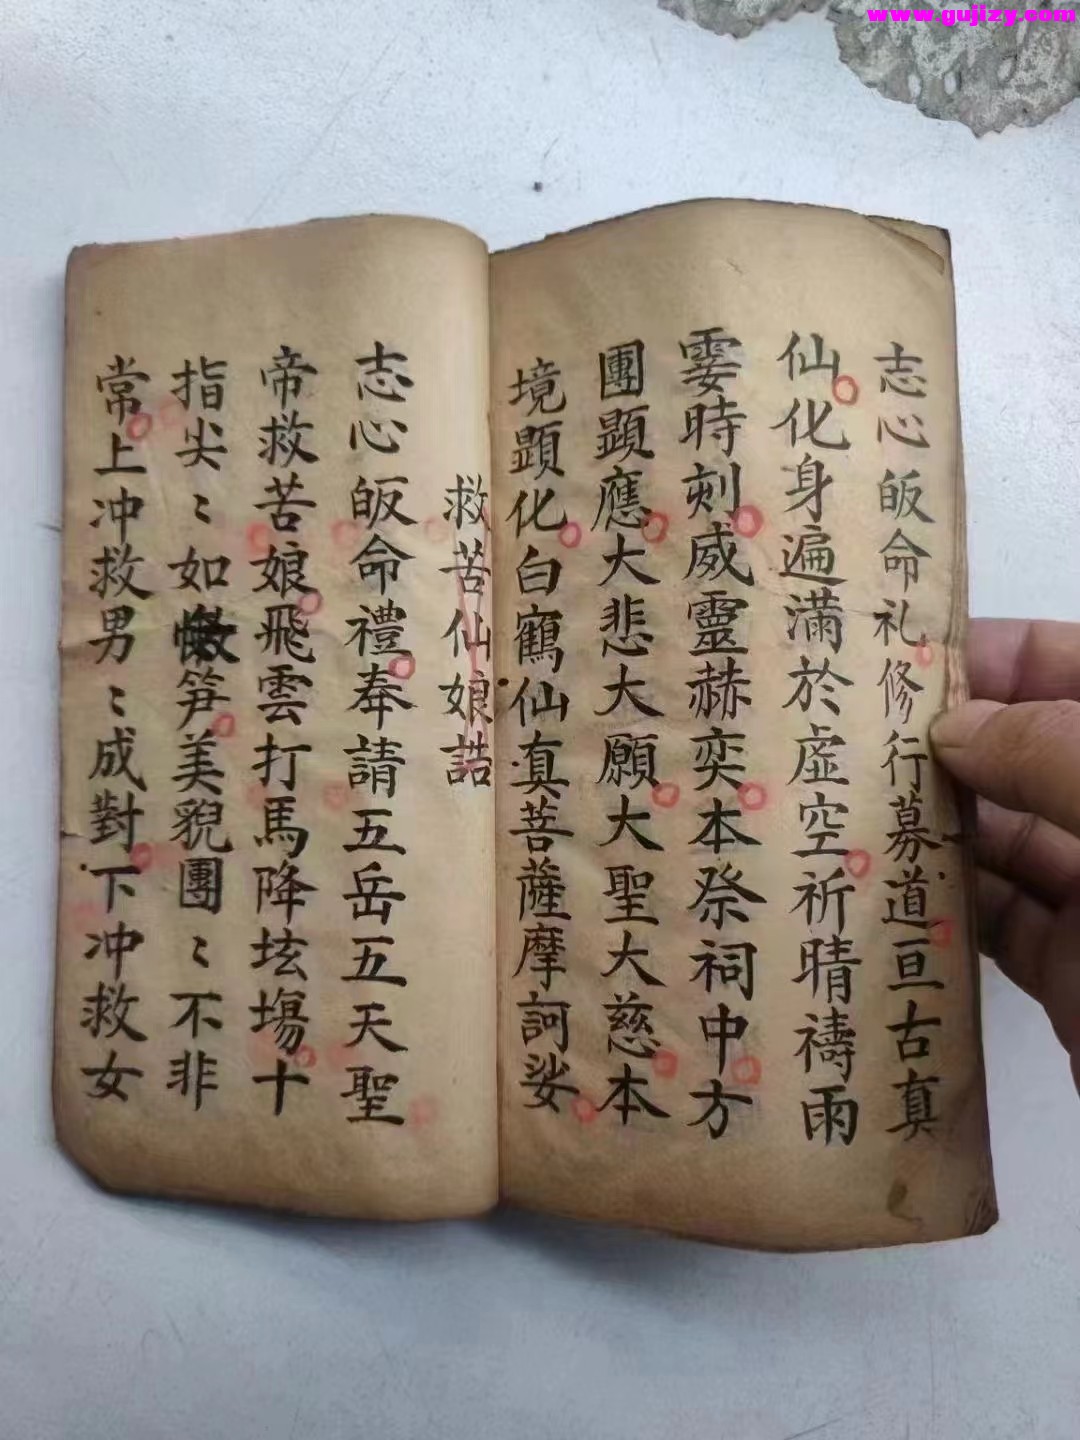 www.gujizy.com
志心皈命礼修行募道亘古真
仙化身遍滿於虛空祈晴禱雨
霎時刻威靈赫奕本祭祠中方
團顕應大悲大願大聖大慈本
境顕化白鶴仙真菩薩摩訶娑
救苦仙娘誥
志心皈命禮奉請五岳五天聖
帝救苦娘飛雲打馬降坛塲十
指尖〻如笋美貎團〻不非
常上冲救男〻成對下冲救女